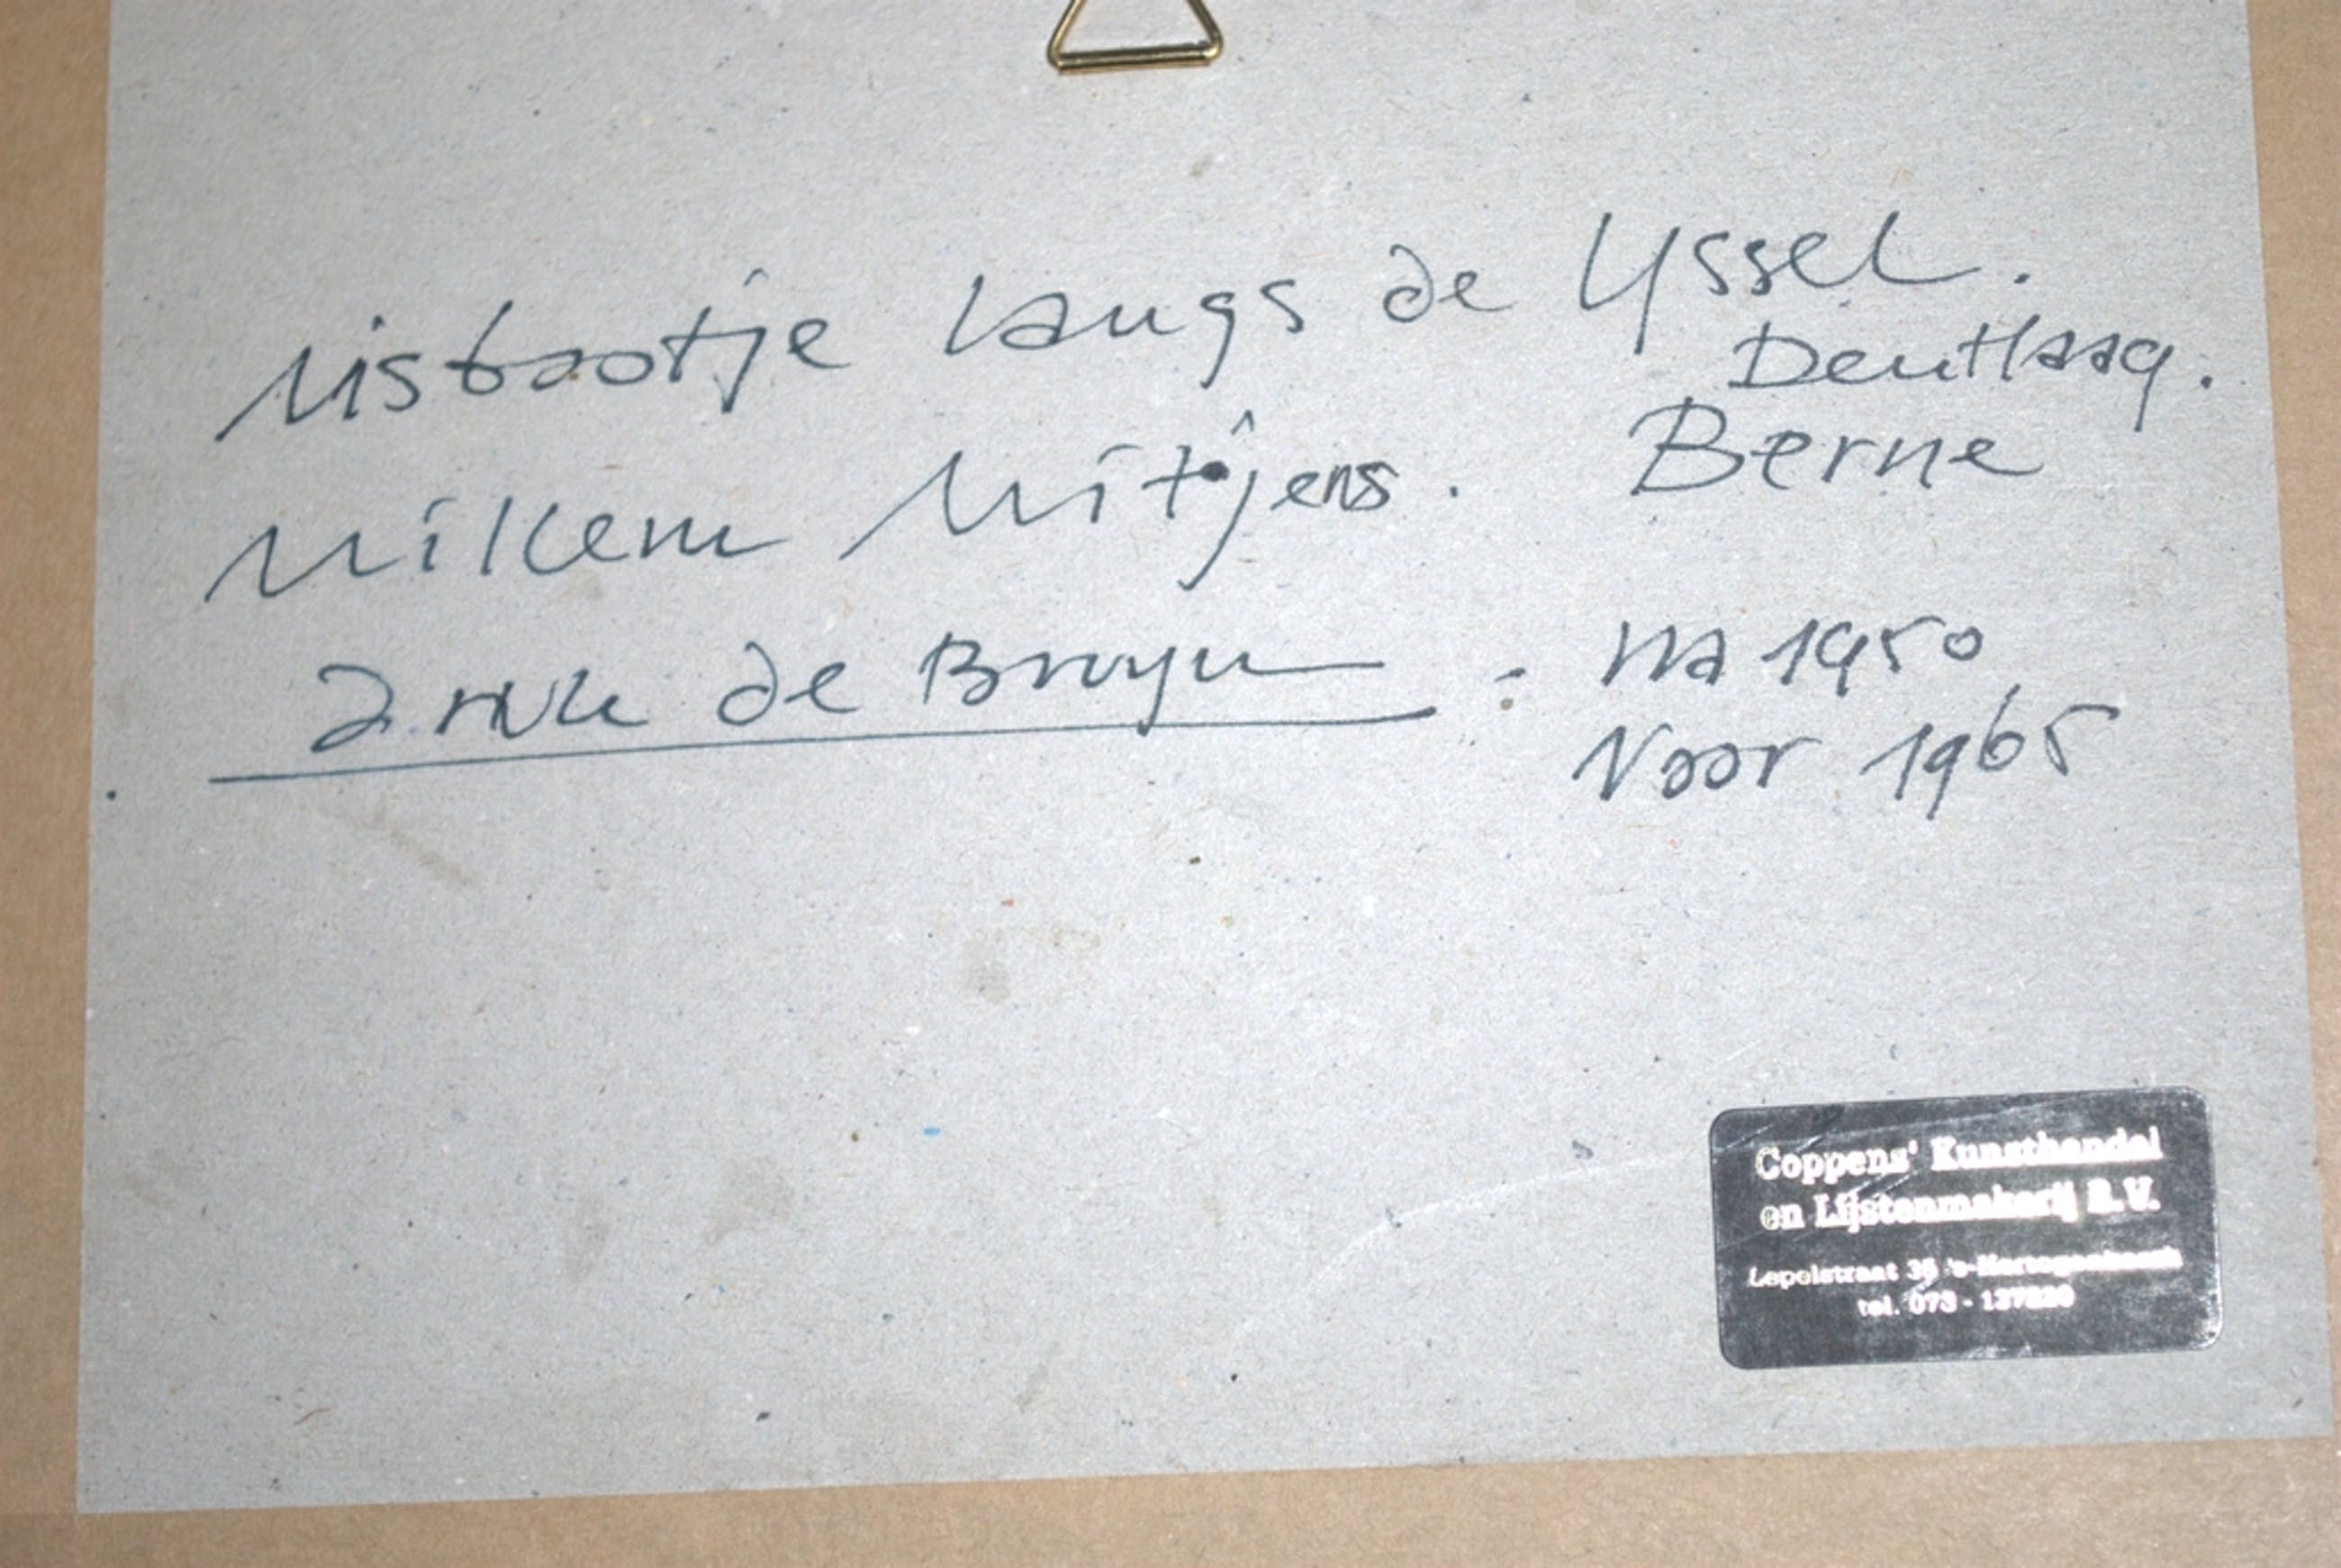 Visbootje langs de IJssel.
Den Haag.
Willem Witjens. Berne
de Bruyn - na 1950
Voor 1965
Coppens' Kunsthandel
en Lijstenmakerij B.V.
Lepelstraat 's-Hertogenbosch
tel. 073 -